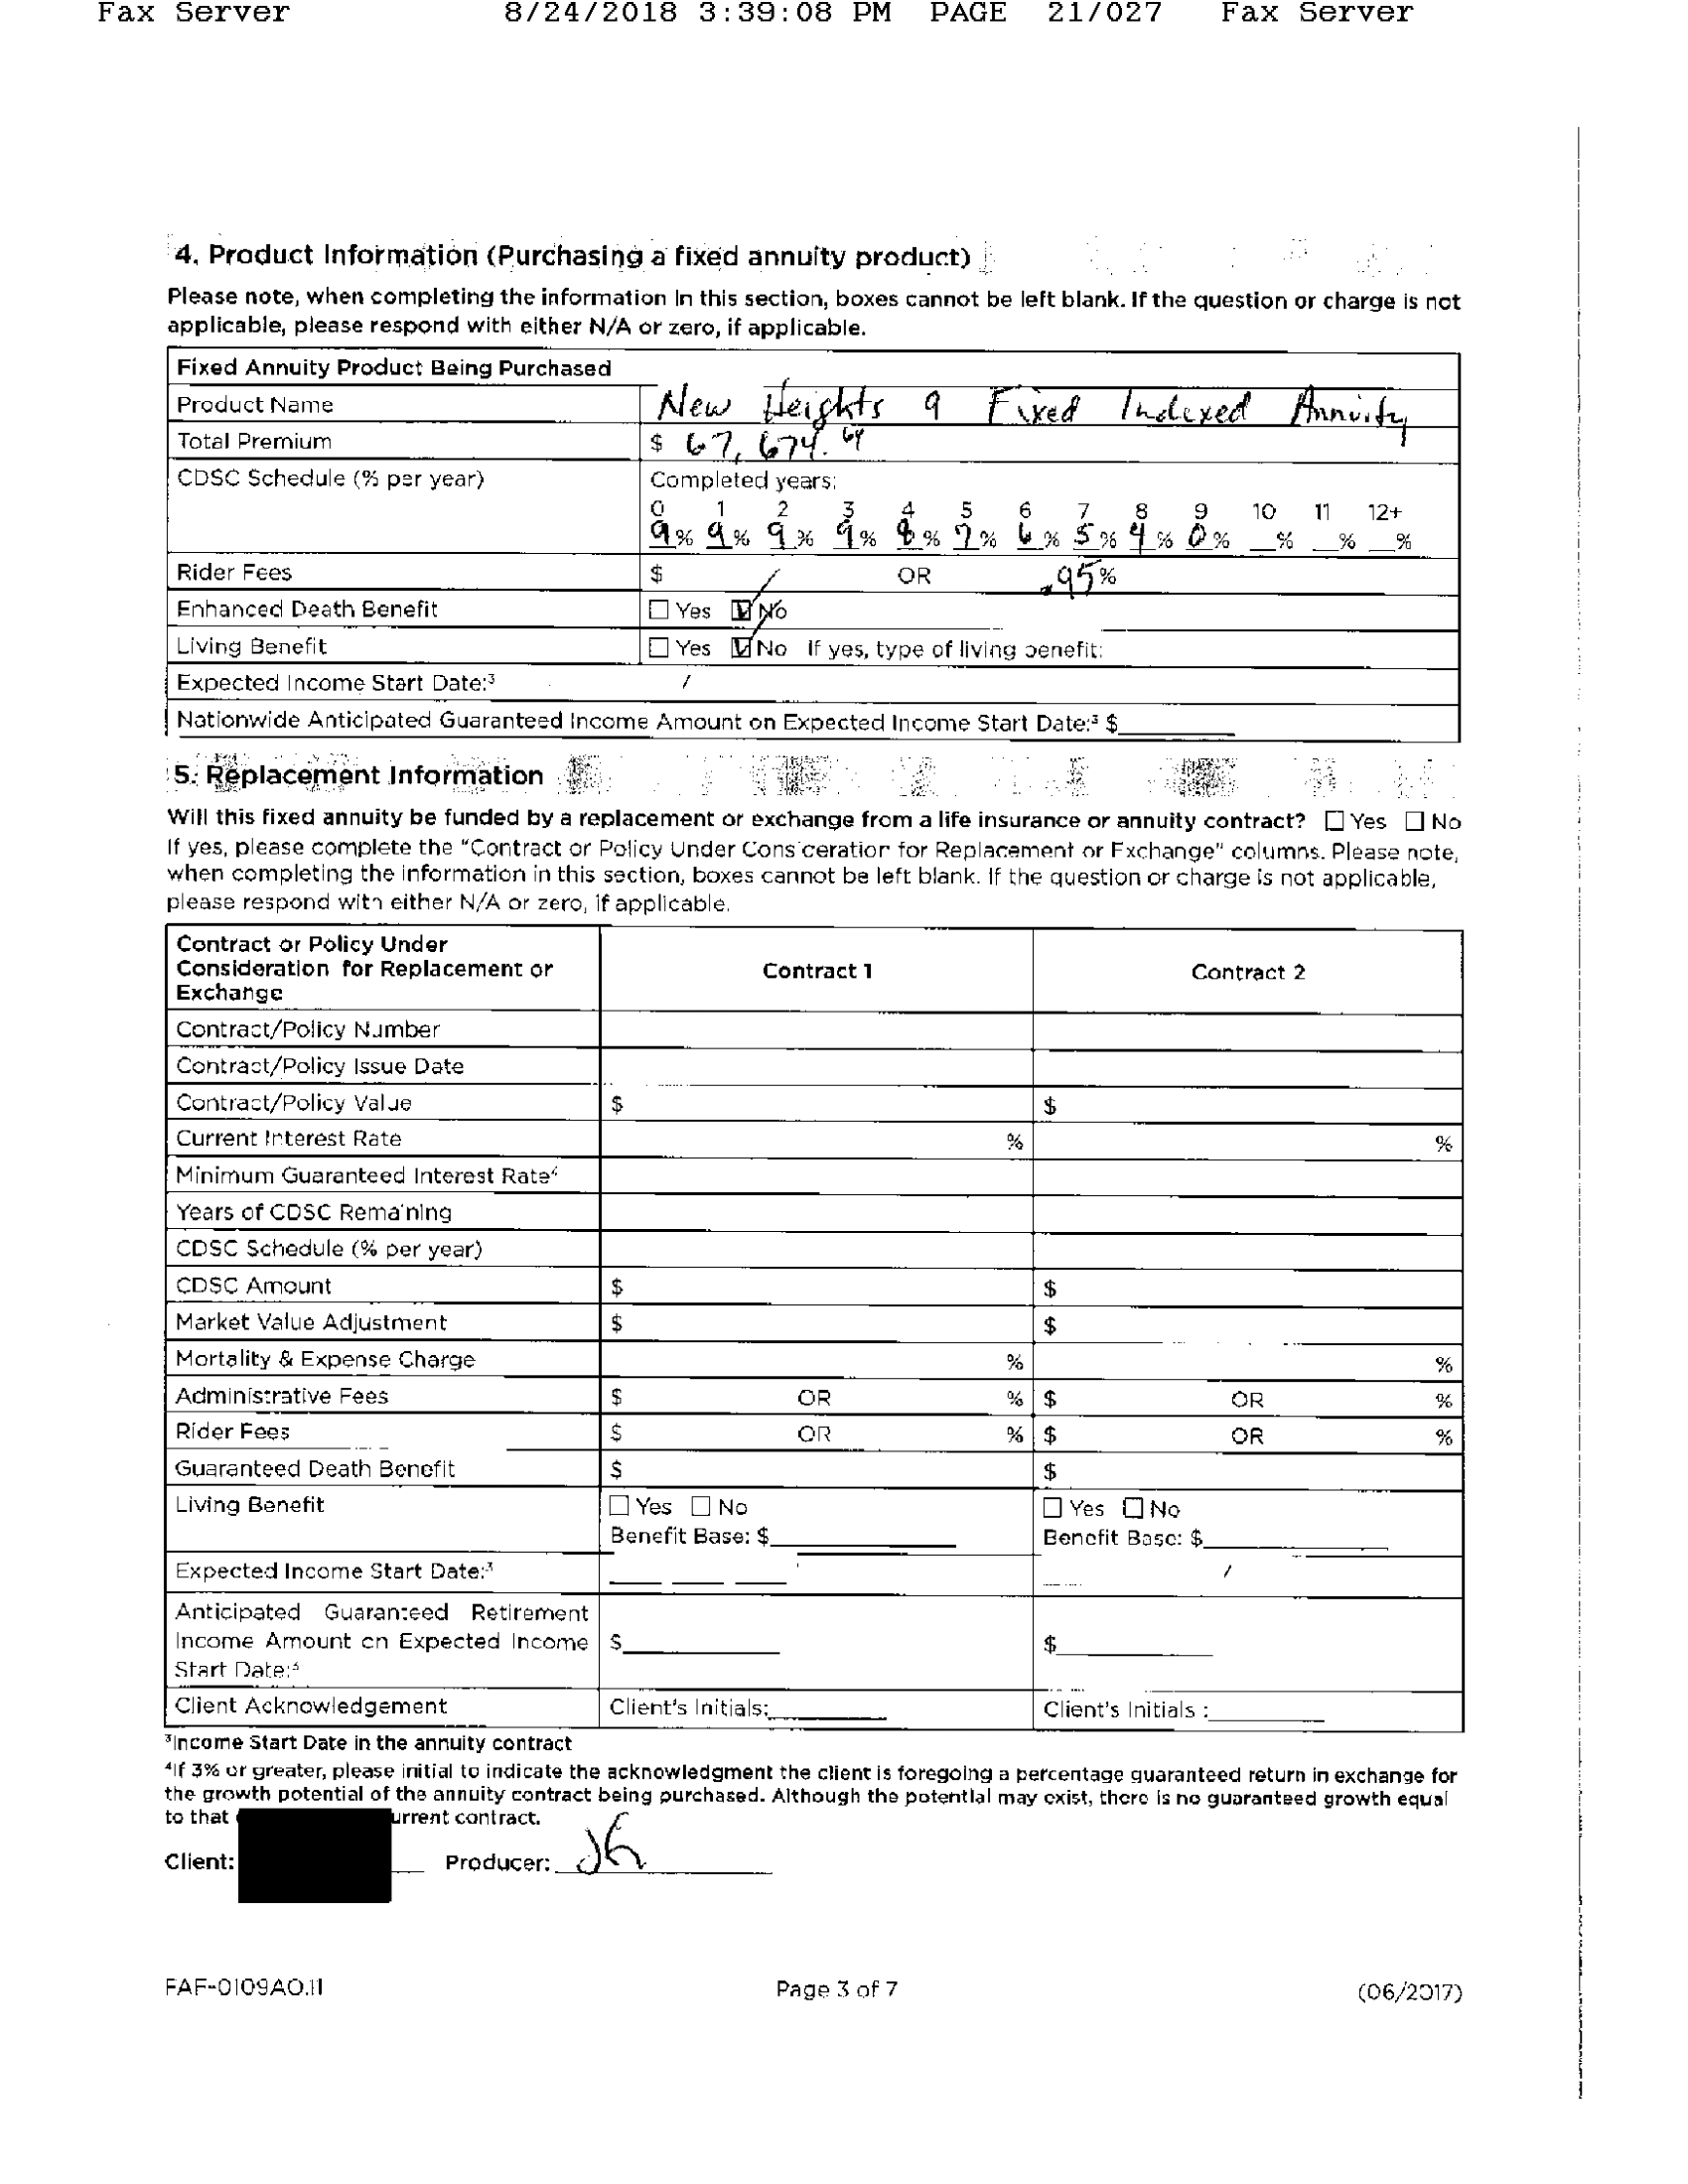 Fax Server 8/24/2018 3:39:08 PM PAGE 21/027 Fax Server
4. Product Information (Purchasing a fixed annuity product)
Please note, when completing the information in this section, boxes cannot be left blank. If the question or charge is not
applicable, please respond with either N/A or zero, if applicable.
Fixed Annuity Product Being Purchased
Product Name New Heights 9 Fixed Indexed Annuity
Total Premium $ 67,674.64
CDSC Schedule (% per year) Completed years:
0 1 2 3 4 5 6 7 8 9 10 11 12+
9% 9% 9% 9% 8% 7% 6% 5% 4% 0% _% _% _%
Rider Fees $ OR .95%
Enhanced Death Benefit ☐ Yes ☑ No
Living Benefit ☐ Yes ☑ No If yes, type of living benefit:
Expected Income Start Date:³ /
Nationwide Anticipated Guaranteed Income Amount on Expected Income Start Date:³ $
5. Replacement Information
Will this fixed annuity be funded by a replacement or exchange from a life insurance or annuity contract? ☐ Yes ☐ No
If yes, please complete the "Contract or Policy Under Consideration for Replacement or Exchange" columns. Please note,
when completing the information in this section, boxes cannot be left blank. If the question or charge is not applicable,
please respond with either N/A or zero, if applicable.
Contract or Policy Under
Consideration for Replacement or
Exchange
Contract 1 Contract 2
Contract/Policy Number
Contract/Policy Issue Date
Contract/Policy Value $ $
Current Interest Rate % %
Minimum Guaranteed Interest Rate⁴
Years of CDSC Remaining
CDSC Schedule (% per year)
CDSC Amount $ $
Market Value Adjustment $ $
Mortality & Expense Charge % %
Administrative Fees $ OR % $ OR %
Rider Fees $ OR % $ OR %
Guaranteed Death Benefit $ $
Living Benefit ☐ Yes ☐ No ☐ Yes ☐ No
Benefit Base: $ Benefit Base: $
Expected Income Start Date:³ /
Anticipated Guaranteed Retirement
Income Amount on Expected Income $ $
Start Date:³
Client Acknowledgement Client's Initials: Client's Initials :
³Income Start Date in the annuity contract
⁴If 3% or greater, please initial to indicate the acknowledgment the client is foregoing a percentage guaranteed return in exchange for
the growth potential of the annuity contract being purchased. Although the potential may exist, there is no guaranteed growth equal
to that urrent contract.
Client: Producer: JG
FAF-0109AO.11 Page 3 of 7 (06/2017)